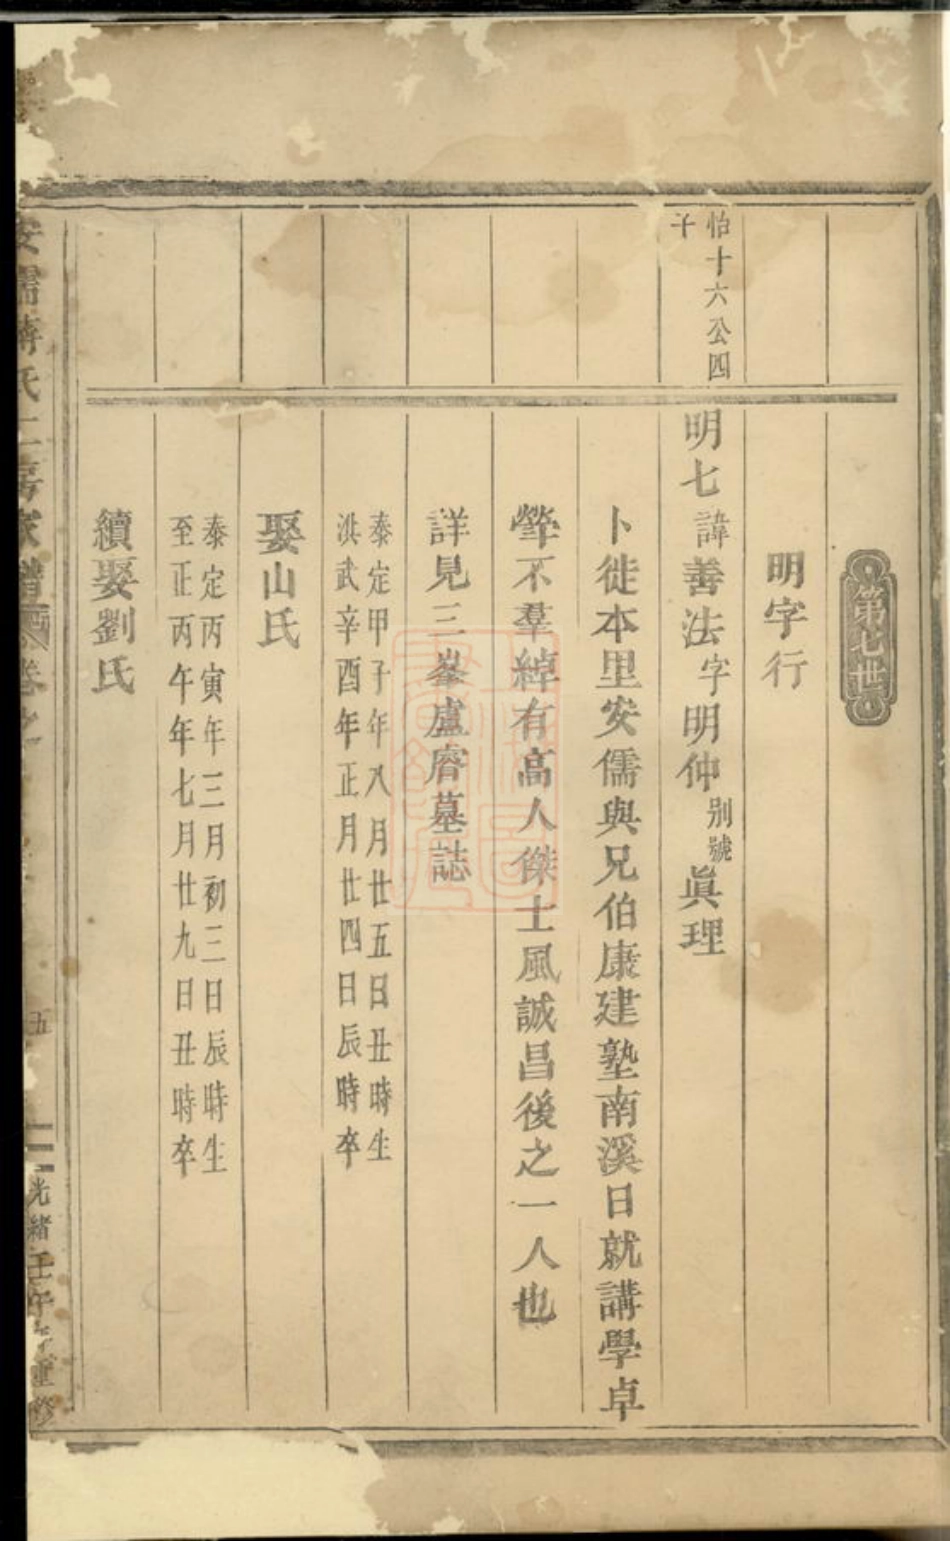 第七世
明字行
怡十六公四
子
明七諱善法字明仲別號眞理
卜徙本里安儒與兄伯康建塾南溪日就講學卓
犖不羣綽有高人傑士風誠昌後之一人也
詳見三峯盧睿墓誌
泰定甲子年八月廿五日丑時生
洪武辛酉年正月廿四日辰時卒
娶山氏
泰定丙寅年三月初三日辰時生
至正丙午年七月廿九日丑時卒
續娶劉氏
安儒蔣氏二房家譜 卷之
五
光緒壬午年重修